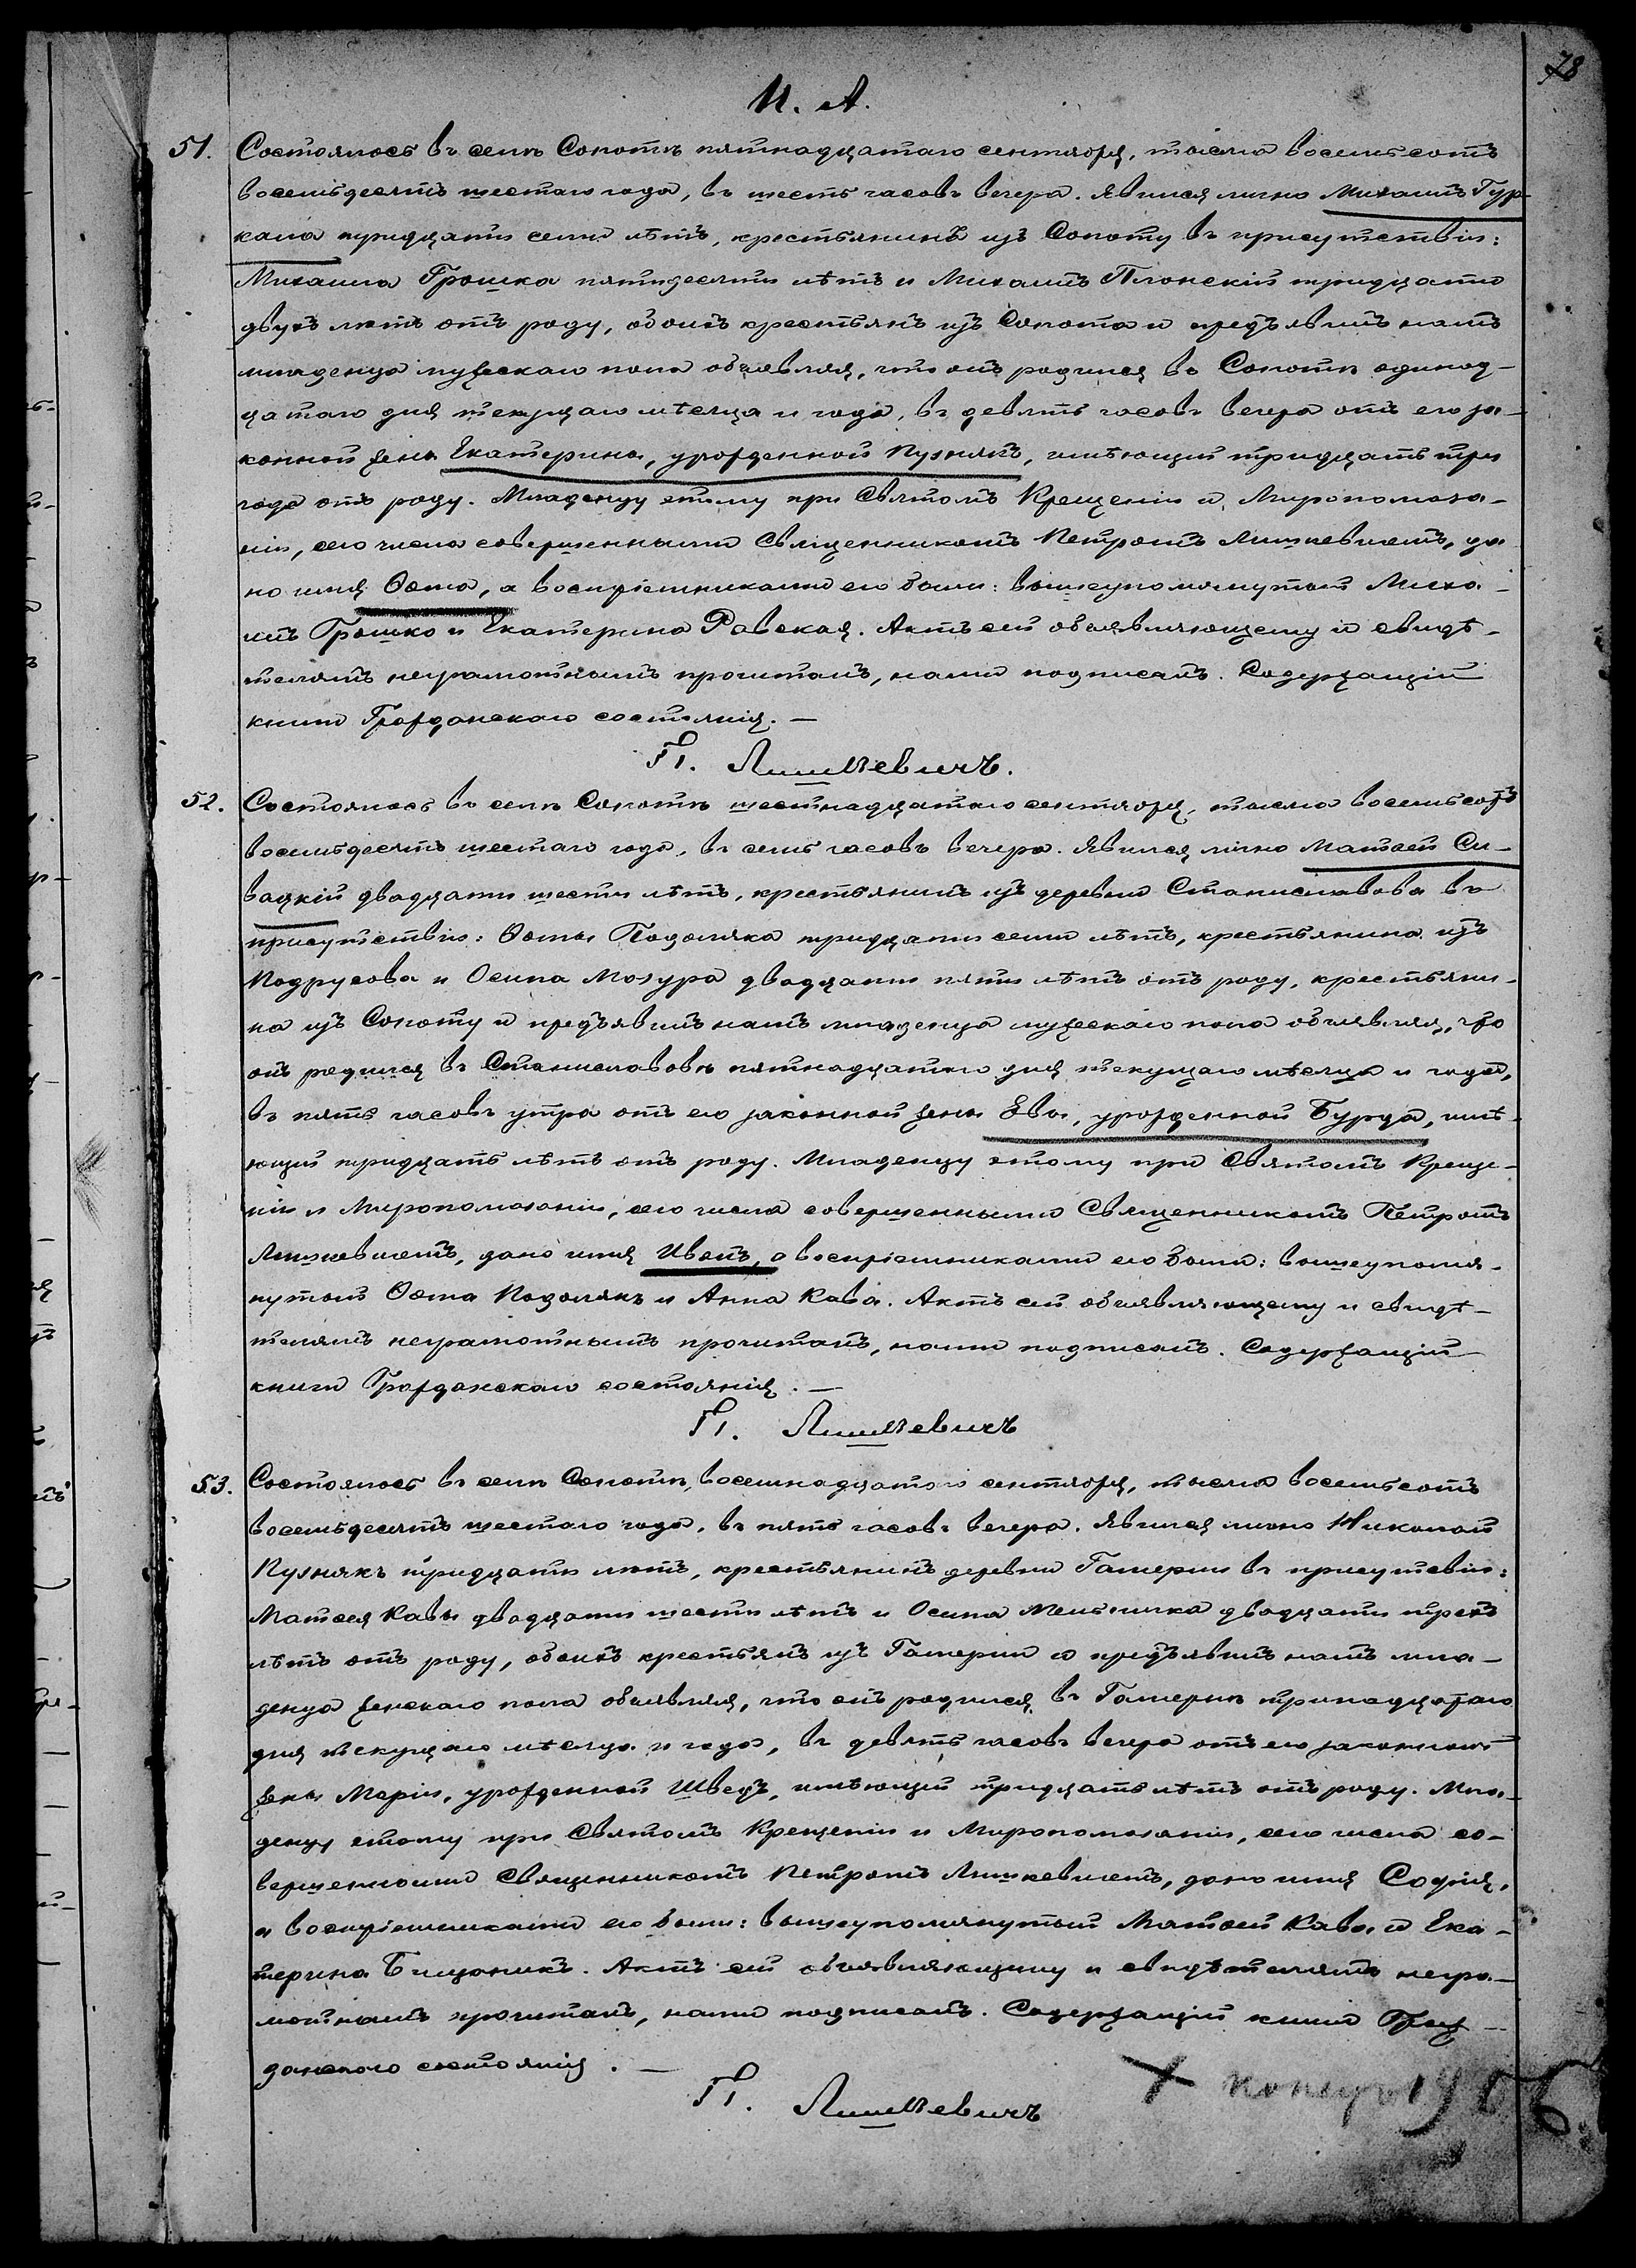 78
М. А.
51. Состоялось въ селѣ Сопотѣ пятнадцатаго сентября, тысяча восемьсотъ
восемьдесятъ шестаго года, въ шесть часовъ вечера. Явился лично Михаилъ Гур-
кала тридцати семи лѣтъ, крестьянинъ изъ Сопоту въ присутствіи:
Михаила Грошка пятидесяти лѣтъ и Михаилъ Плонскій тридцати
двухъ лѣтъ отъ роду, обоихъ крестьянъ изъ Сопота и предъявилъ намъ
младенца мужескаго пола объявляя, что онъ родился въ Сопотѣ одинад-
цатаго дня текущаго мѣсяца и года, въ девять часовъ вечера отъ его за-
конной жены Екатерины, урожденной Пузнякъ, имѣющій тридцать три
года отъ роду. Младенцу этому при Святомъ Крещеніи и Миропомаза-
ніи, сего числа совершенными Священникомъ Петромъ Лишкевичемъ, да
но имя Ѳома, а воспріемниками его были: вышеупомянутый Миха-
илъ Грошко и Екатерина Равская. Актъ сей объявляющему и свидѣ-
телямъ неграмотнымъ прочитанъ, нами подписанъ. Содержащій
книги Гражданскаго состоянія. —
П. Лишкевичъ.
52. Состоялось въ селѣ Сопотѣ шестнадцатаго сентября, тысяча восемьсотъ
восемьдесятъ шестаго года, въ семь часовъ вечера. Явился лично Матѳей Си-
вацкій двадцати шести лѣтъ, крестьянинъ изъ деревни Станиславова въ
присутствіи: Ѳомы Подоляка тридцати семи лѣтъ, крестьянина изъ
Подрусова и Осипа Мазура двадцати пяти лѣтъ отъ роду, крестьяни-
на изъ Сопоту и предъявилъ намъ младенца мужескаго пола объявляя, что
онъ родился въ Станиславовѣ пятнадцатаго дня текущаго мѣсяца и года,
въ пять часовъ утра отъ его законной жены Евы, урожденной Бурда, имѣ-
ющій тридцать лѣтъ отъ роду. Младенцу этому при Святомъ Креще-
ніи и Миропомазаніи, сего числа совершенными Священникомъ Петромъ
Лишкевичемъ, дано имя Иванъ, а воспріемниками его были: вышеупомя-
нутый Ѳома Подолякъ и Анна Кава. Актъ сей объявляющему и свидѣ-
телямъ неграмотнымъ прочитанъ, нами подписанъ. Содержащій
книги Гражданскаго состоянія. —
П. Лишкевичъ
53. Состоялось въ селѣ Сопотѣ, восемнадцатаго сентября, тысяча восемьсотъ
восемьдесятъ шестаго года, въ пять часовъ вечера. Явился лично Николай
Пузнякъ тридцати лѣтъ, крестьянинъ деревни Гамерни въ присутствіи:
Матѳея Кавы двадцати шести лѣтъ и Осипа Мельника двадцати трехъ
лѣтъ отъ роду, обоихъ крестьянъ изъ Гамерни и предъявилъ намъ мла-
денца женскаго пола объявляя, что онъ родился въ Гамернѣ тринадцатаго
дня текущаго мѣсяца и года, въ девять часовъ вечера отъ его законной
жены Маріи, урожденной Шведъ, имѣющій тридцать лѣтъ отъ роду. Мла-
денцу этому при Святомъ Крещеніи и Миропомазаніи, сего числа со-
вершенными Священникомъ Петромъ Лишкевичемъ, дано имя Софія,
а воспріемниками его были: вышеупомянутый Матѳей Кава и Ека-
терина Бищаникъ. Актъ сей объявляющему и свидѣтелямъ негра-
мотнымъ прочитанъ, нами подписанъ. Содержащій книги Граж-
данскаго состоянія. —
П. Лишкевичъ